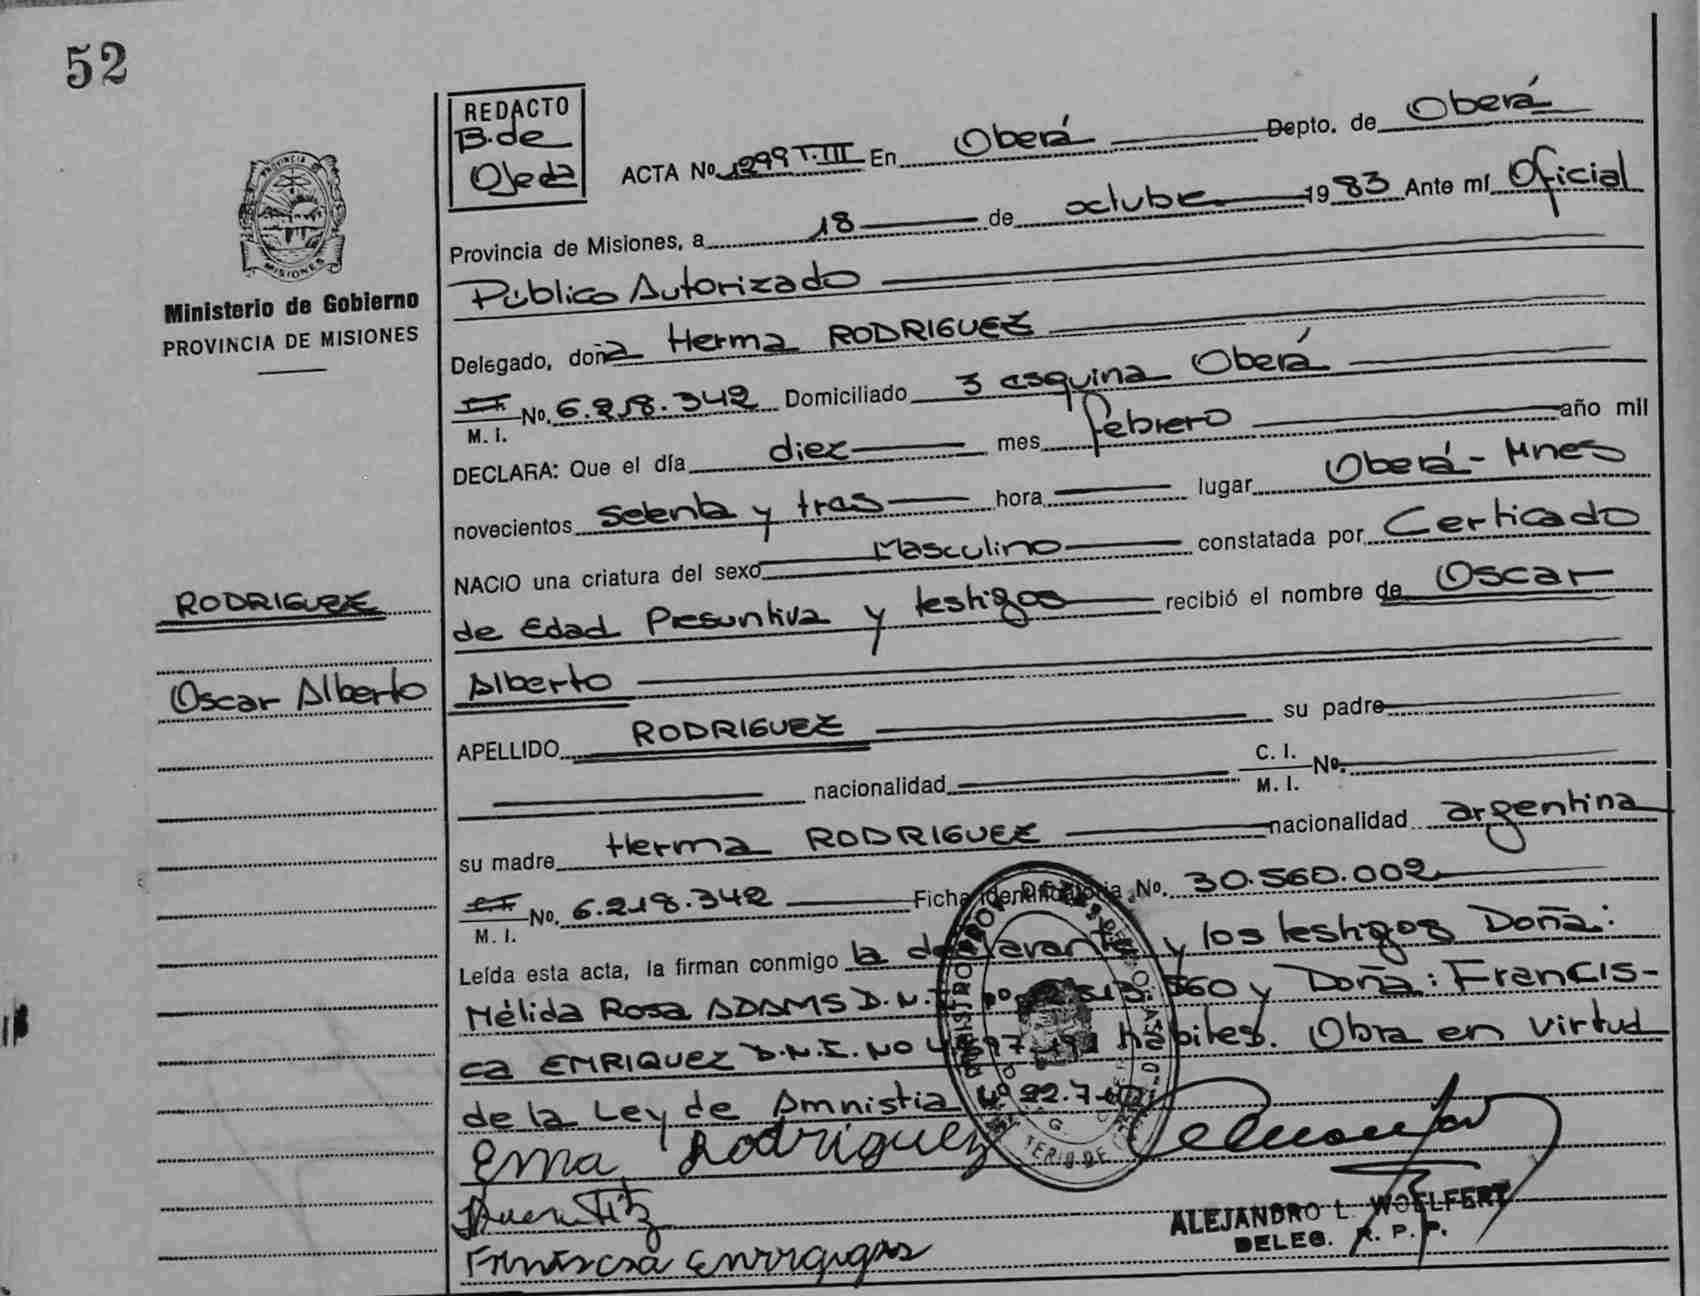 52
REDACTO
B. de
Ojeda
ACTA No. 1299 T. III En Oberá Depto. de Oberá
Provincia de Misiones, a 18 de octubre 1983 Ante mí Oficial
Público Autorizado
Delegado, doña Herma RODRIGUEZ
M. I. No. 6.218.342 Domiciliado 3 esquina Oberá
DECLARA: Que el día diez mes febrero año mil
novecientos setenta y tres hora lugar Oberá - Mnes
NACIO una criatura del sexo Masculino constatada por Certicado
de Edad Presuntiva y testigos recibió el nombre de Oscar
Alberto
APELLIDO RODRIGUEZ su padre
nacionalidad C. I. M. I. No.
su madre Herma RODRIGUEZ nacionalidad argentina
M. I. No. 6.218.342 Ficha identificatoria No. 30.560.002
Leída esta acta, la firman conmigo la declarante y los testigos Doña:
Nélida Rosa ADAMS D.N.I. 560 y Doña: Francis-
ca ENRIQUEZ D.N.I. NO hábiles. Obra en virtud
de la Ley de Amnistia Nº 22.7
Erna Rodriguez
ALEJANDRO L. WOELFERT
DELEG. R. P. P.
PROVINCIA DE
MISIONES
Ministerio de Gobierno
PROVINCIA DE MISIONES
RODRIGUEZ
Oscar Alberto